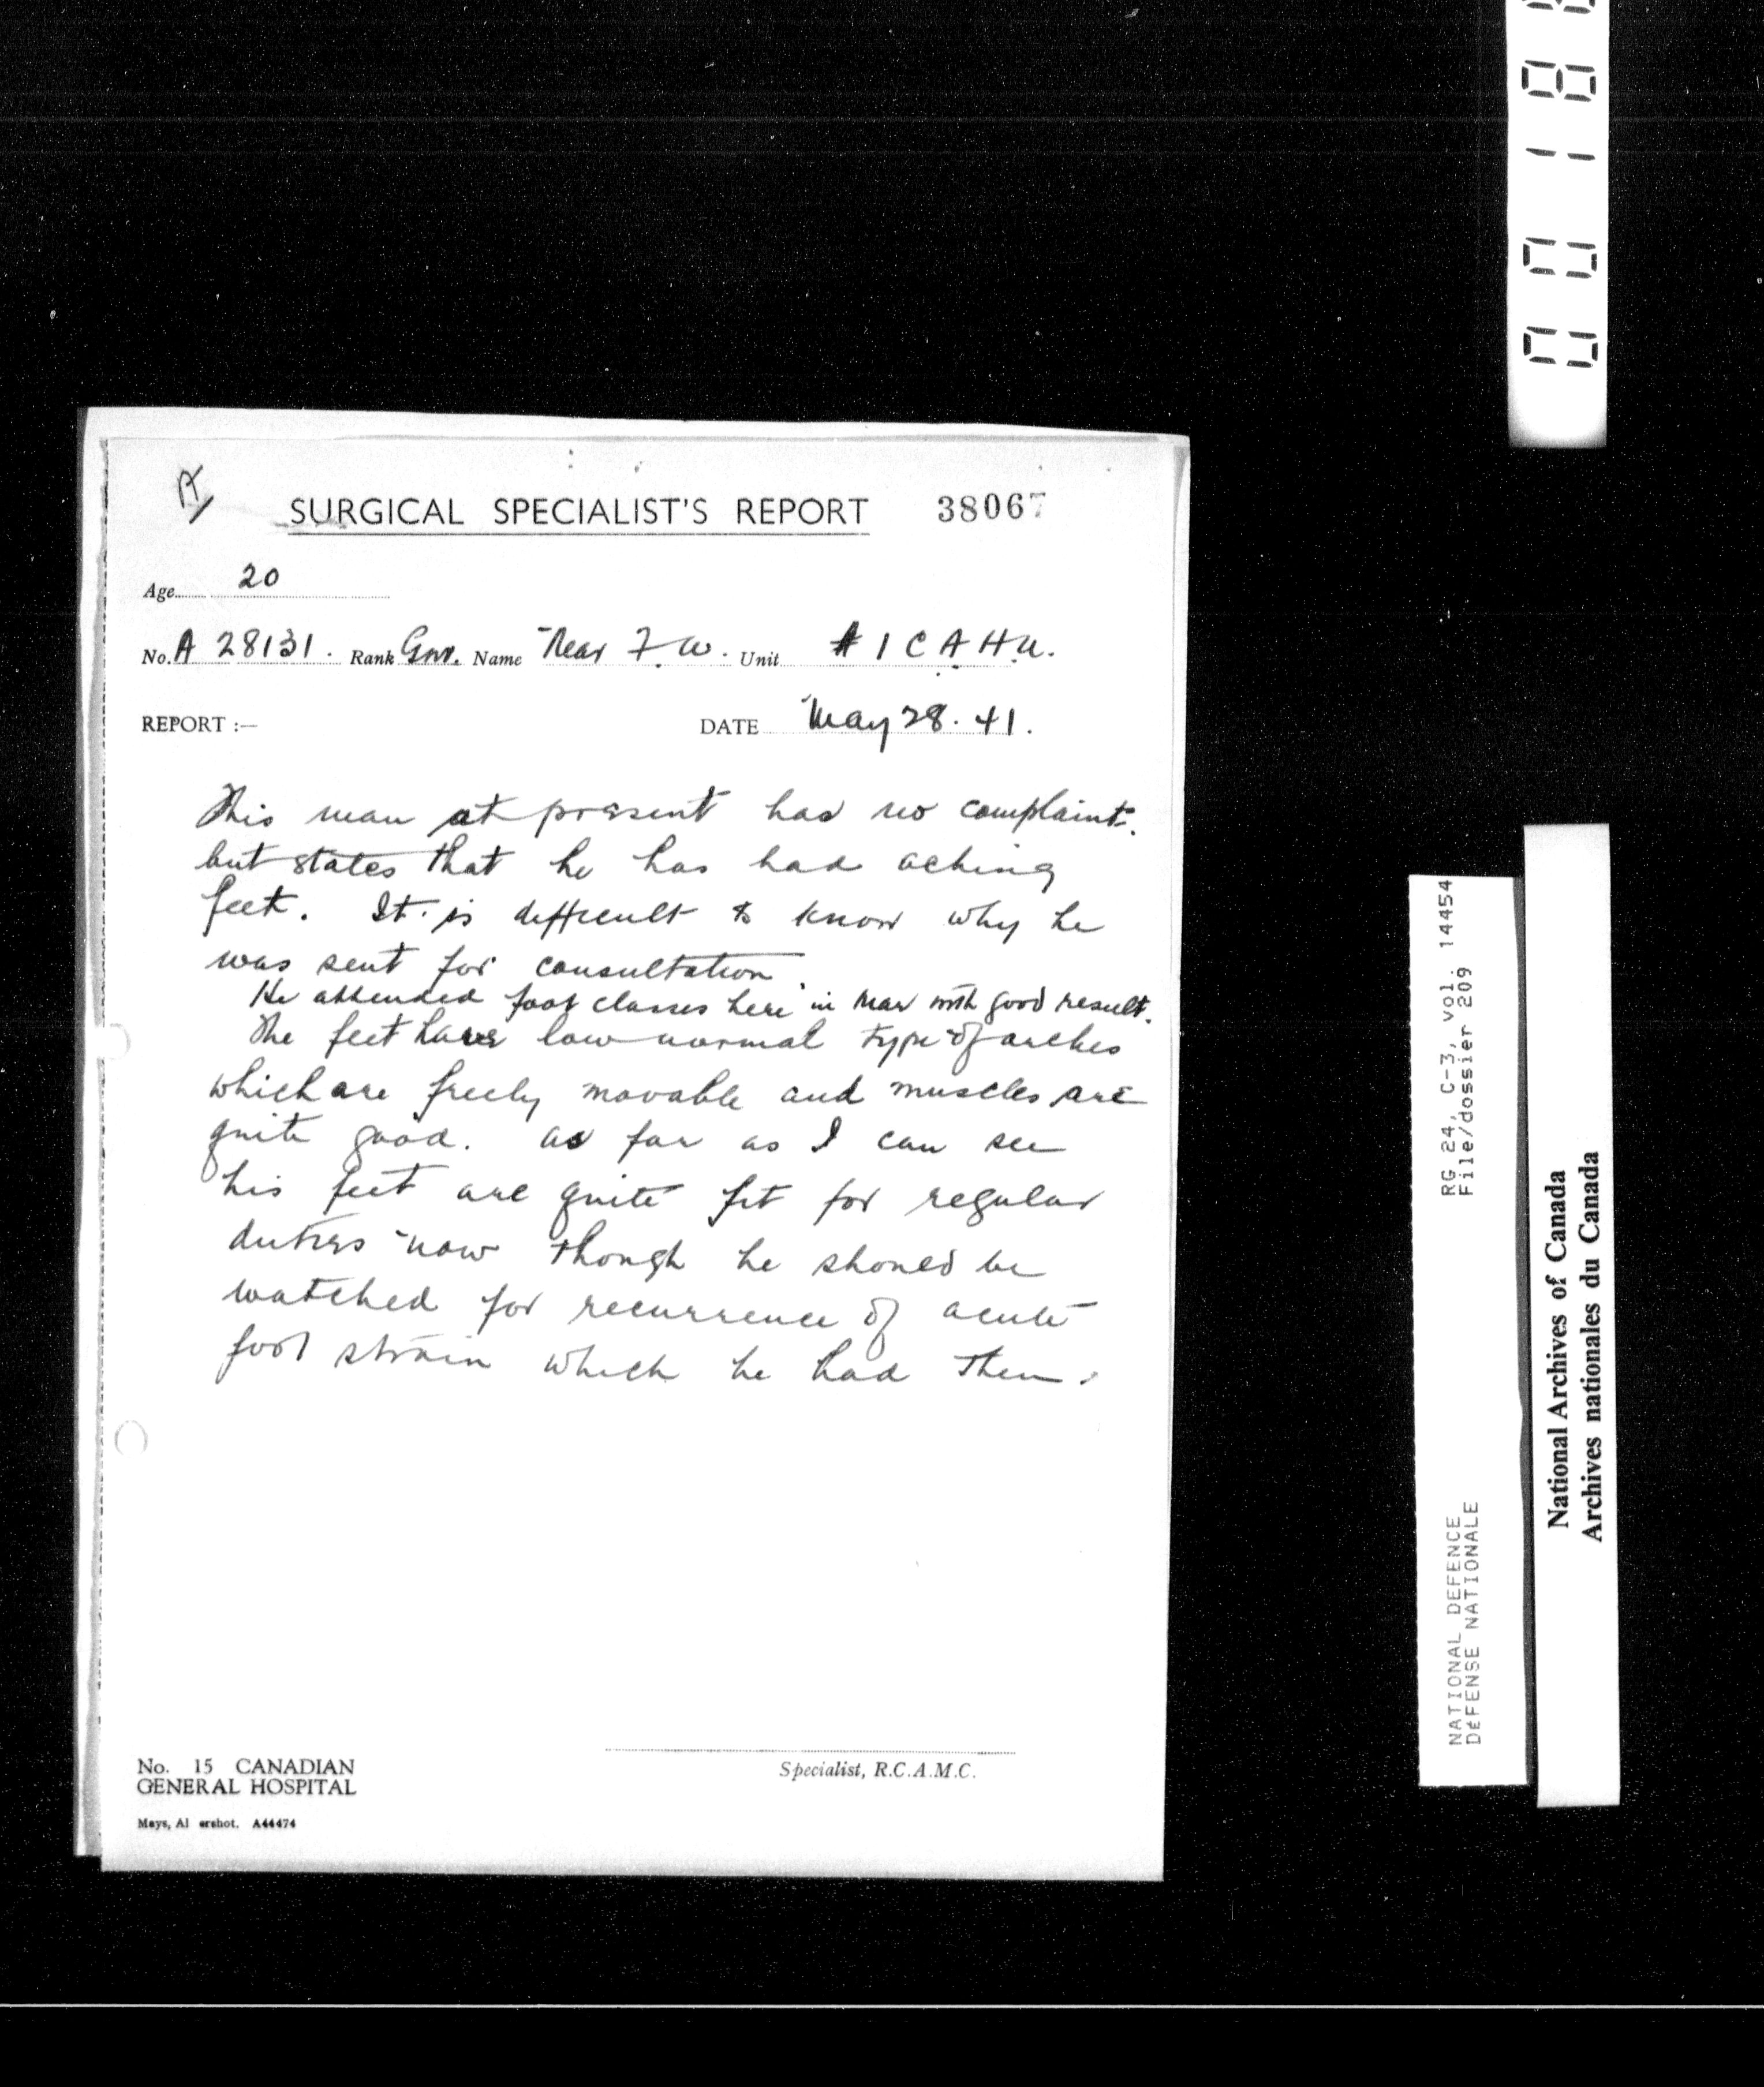 SURGICAL SPECIALIST'S REPORT 38067
Age 20
No. A 28131. Rank Gnr. Name F. W. Unit # 1 C A H U.
REPORT :— DATE May 28. 41.
This man at present has no complaint.
but states that he has had aching
feet. It is difficult to know why he
was sent for consultation.
He attended foot classes here in Mar with good result.
The feet have low normal type of arches
which are freely movable and muscles are
quite good. as far as I can see
his feet are quite fit for regular
duties now though he should be
watched for recurrence of acute
foot strain which he had then.
No. 15 CANADIAN
GENERAL HOSPITAL
Specialist, R.C.A.M.C.
Mays, Al ershot. A44474
RG 24, C-3, vol. 14454
File/dossier 209
NATIONAL DEFENCE
DÉFENSE NATIONALE
National Archives of Canada
Archives nationales du Canada